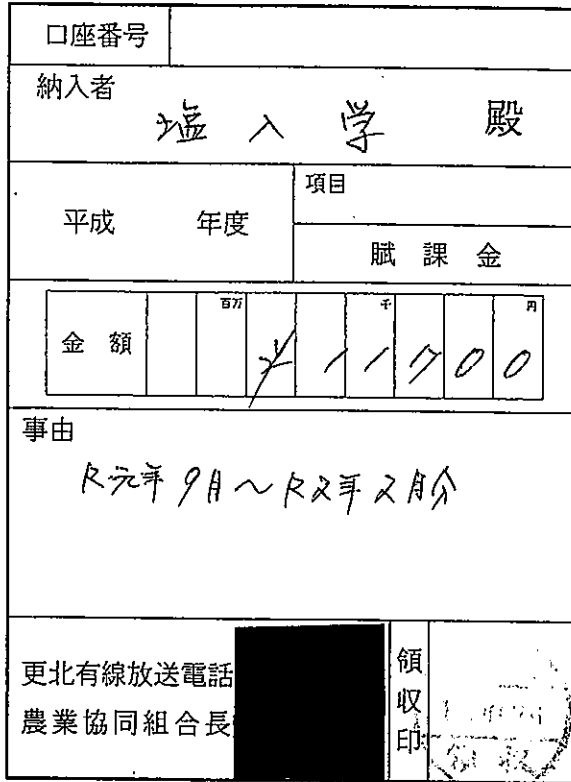 口座番号
納入者
塩入学 殿
平成 年度
項目
賦課金
金額 百万 千 円
¥11700
事由
R元年9月〜R2年2月分
更北有線放送電話
農業協同組合長
領収印
領収